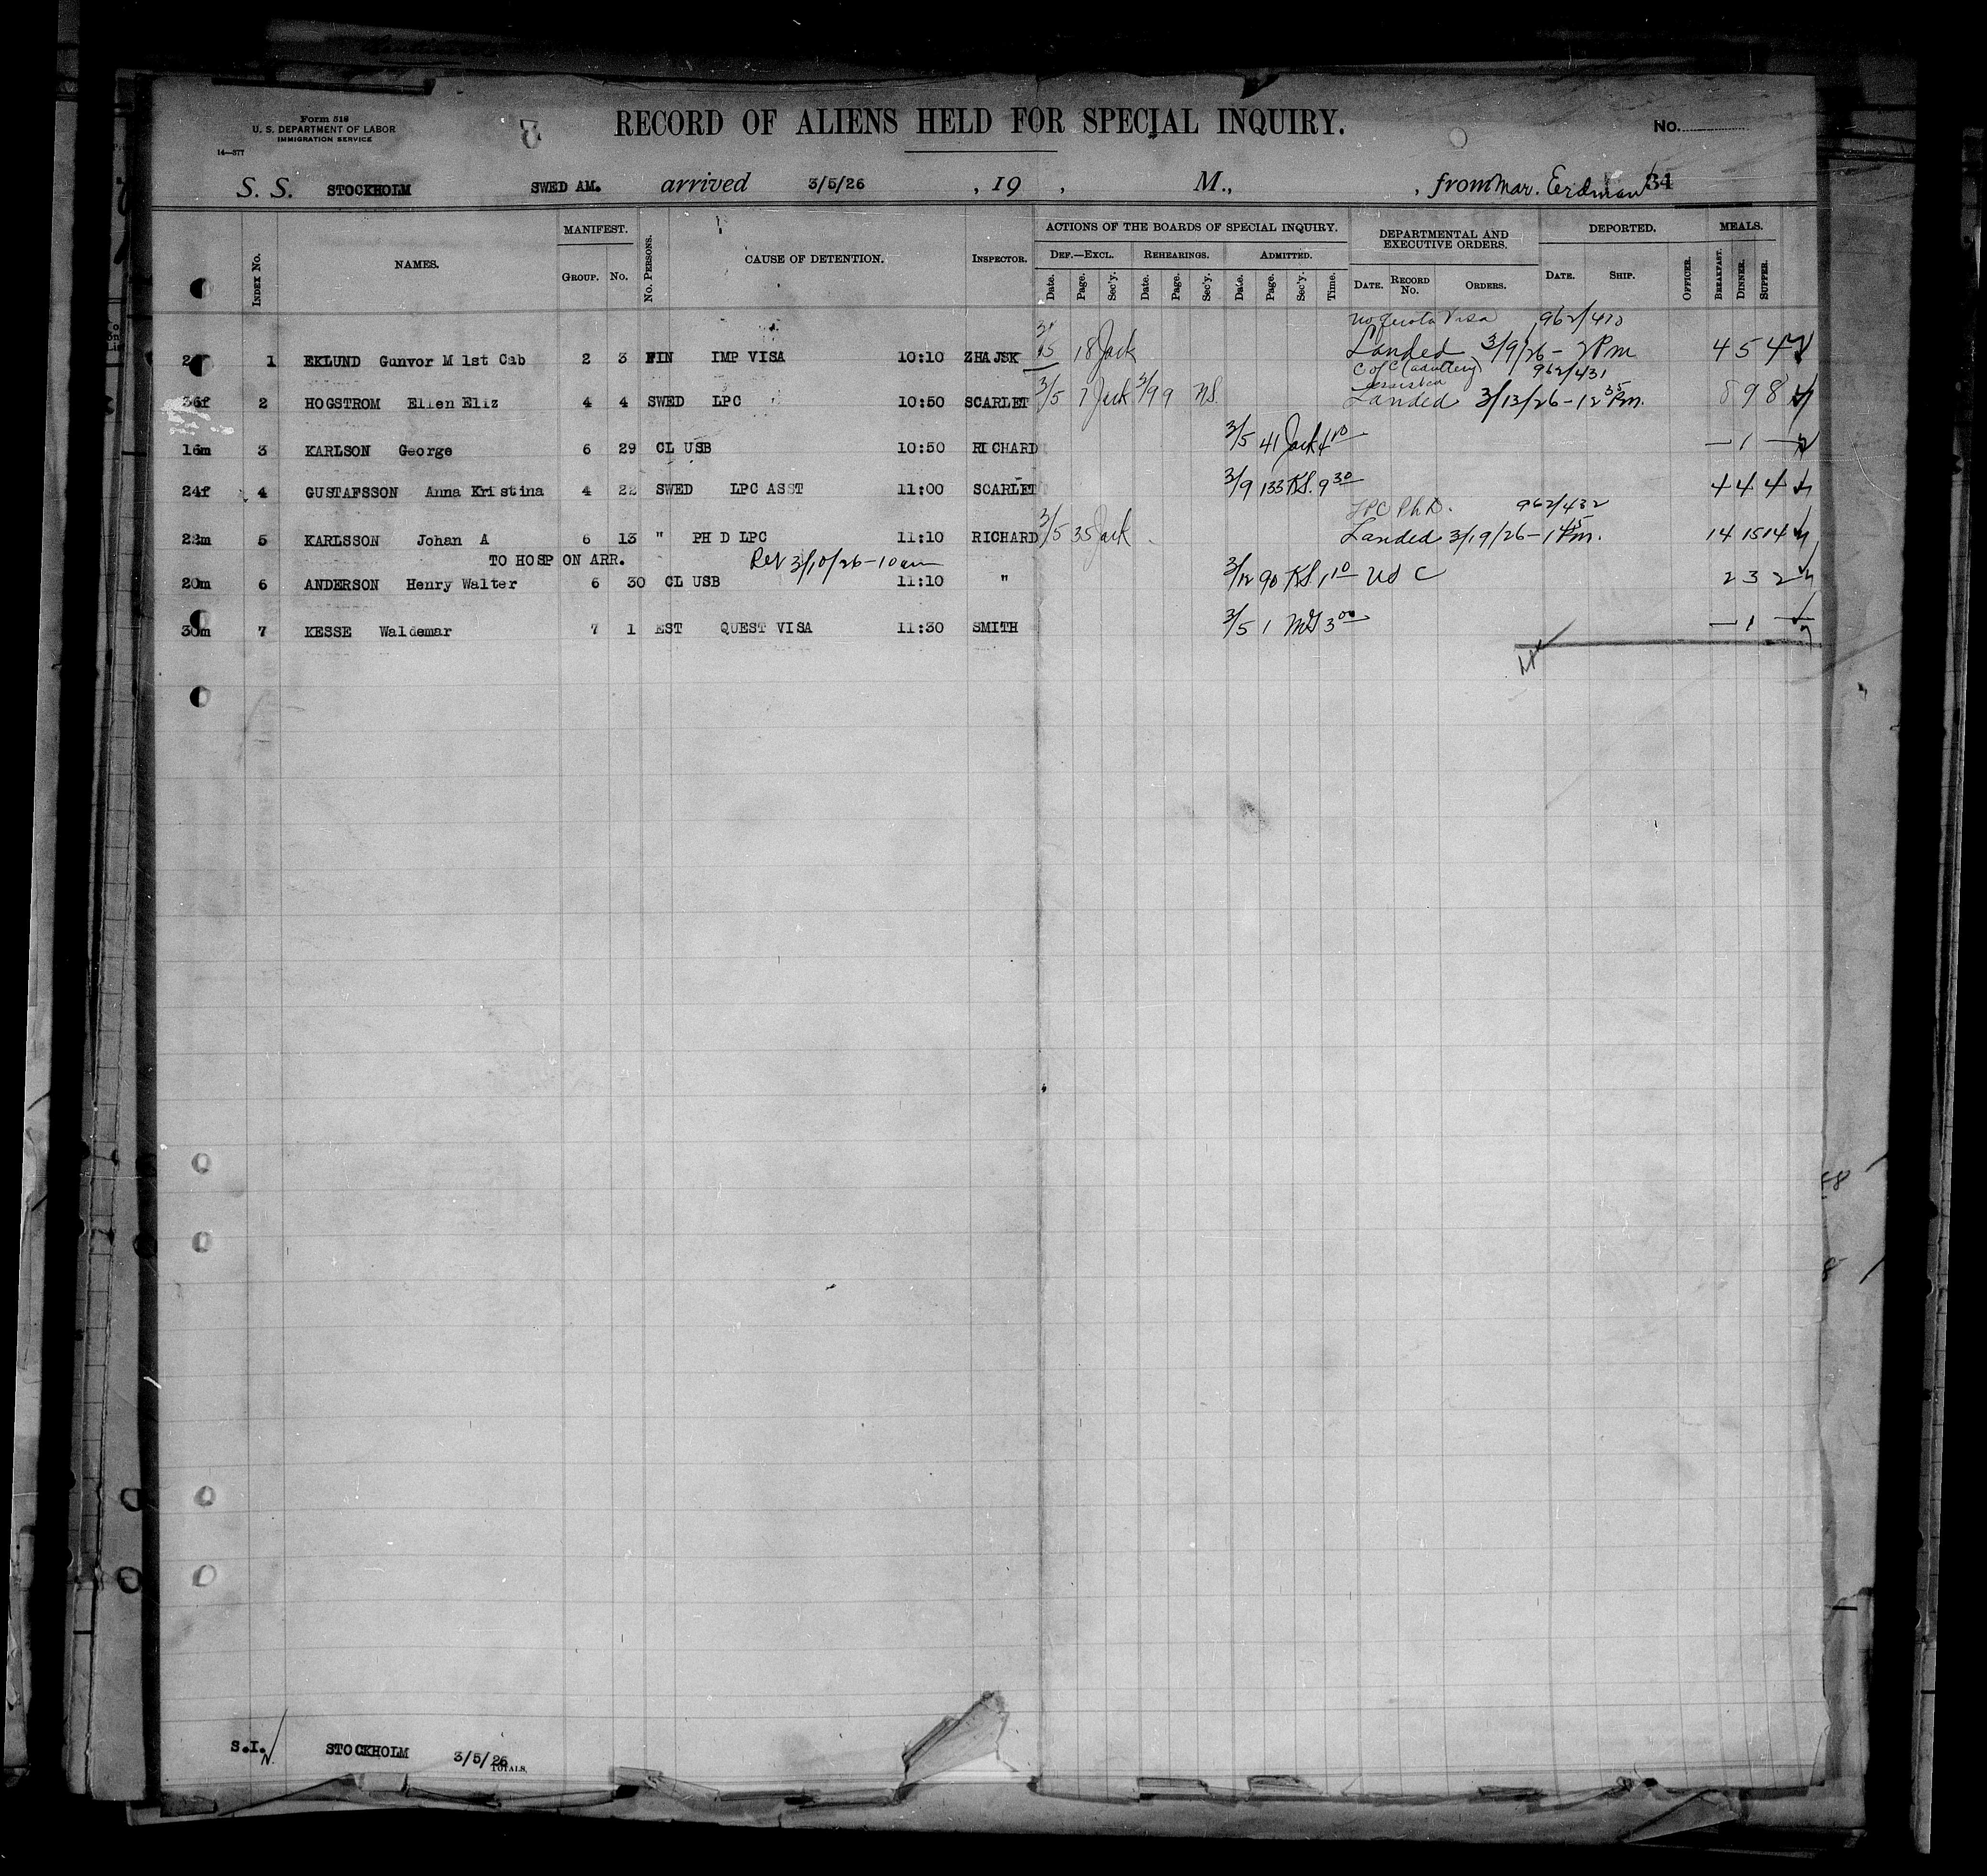 Form 518
U. S. DEPARTMENT OF LABOR
IMMIGRATION SERVICE
14—377
RECORD OF ALIENS HELD FOR SPECIAL INQUIRY.
No.
S. S. STOCKHOLM SWED AM. arrived 3/5/26 , 19 , M., , from Mar. Erdman 34
INDEX No. NAMES. MANIFEST. GROUP. No. No. PERSONS. CAUSE OF DETENTION. INSPECTOR.
ACTIONS OF THE BOARDS OF SPECIAL INQUIRY. DEF.—EXCL. REHEARINGS. ADMITTED.
Date. Page. Sec'y. Date. Page. Sec'y. Date. Page. Sec'y. Time.
DEPARTMENTAL AND EXECUTIVE ORDERS. DATE. RECORD No. ORDERS.
DEPORTED. DATE. SHIP. OFFICER. MEALS. BREAKFAST. DINNER. SUPPER.
no quota Visa 962/470
1 EKLUND Gunvor M 1st Cab 2 3 FIN IMP VISA 10:10 ZHAJSK 3/5 18 Jack Landed 3/9/26 - 2 Pm 4 5 4
C of C (adultery) 962/431
36f 2 HOGSTROM Ellen Eliz 4 4 SWED LPC 10:50 SCARLET 3/5 7 Jack 3/9 9 Landed 3/13/26 - 12 35 Pm. 8 9 8
16m 3 KARLSON George 6 29 CL USB 10:50 RICHARD 3/5 41 Jack 4 10 — 1 —
24f 4 GUSTAFSSON Anna Kristina 4 22 SWED LPC ASST 11:00 SCARLET 3/9 133 KS. 9 30 4 4 4
LPC Ph.D. 962/432
22m 5 KARLSSON Johan A 6 13 " PH D LPC 11:10 RICHARD 3/5 35 Jack Landed 3/19/26 - 1 45 Pm. 14 15 14
TO HOSP ON ARR. Ret 3/10/26 - 10 am
20m 6 ANDERSON Henry Walter 6 30 CL USB 11:10 " 3/12 90 KS 1 10 US C 2 3 2
30m 7 KESSE Waldemar 7 1 EST QUEST VISA 11:30 SMITH 3/5 1 3 00 — 1 —
S.I. STOCKHOLM 3/5/26
TOTALS.